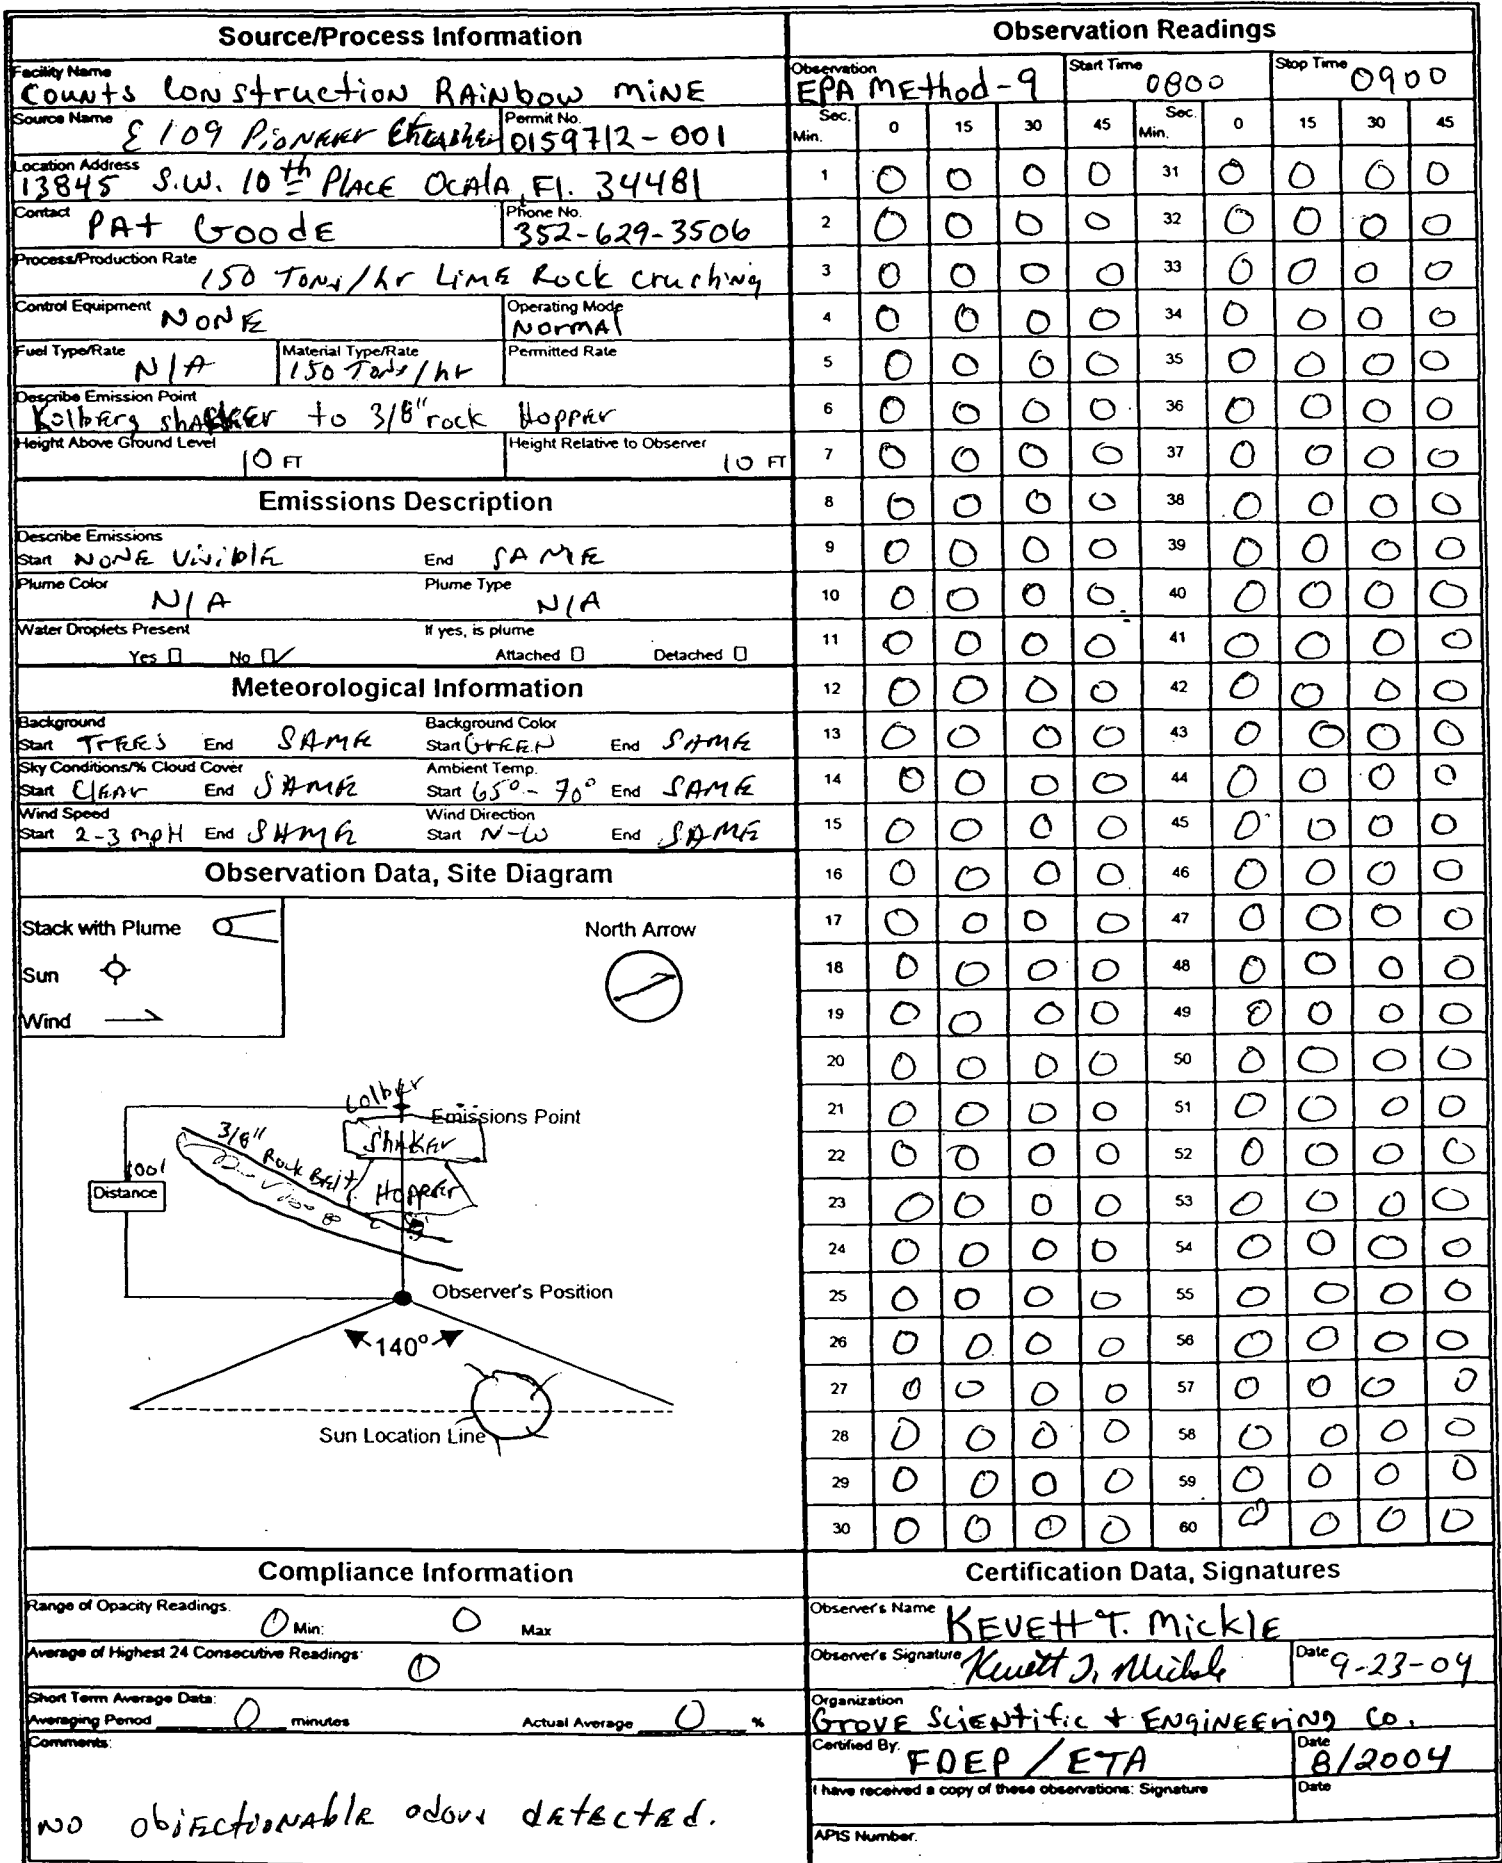 Source/Process Information
Facility Name
Counts Construction RAiNbow miNE
Source Name
E 109 PioNEEr
Permit No.
0159712-001
Location Address
13845 S.W. 10th PLACE OCAlA, Fl. 34481
Contact
PAt GoodE
Phone No.
352-629-3506
Process/Production Rate
150 Tons/hr LimE Rock Crushing
Control Equipment
NONE
Operating Mode
NormAl
Fuel Type/Rate
N/A
Material Type/Rate
150 Tons/hr
Permitted Rate
Describe Emission Point
Kolberg shAKEr to 3/8" rock HoppEr
Height Above Ground Level
10 FT
Height Relative to Observer
10 FT
Emissions Description
Describe Emissions
Start NONE Visible End SAME
Plume Color
N/A
Plume Type
N/A
Water Droplets Present
Yes No ✓
If yes, is plume
Attached Detached
Meteorological Information
Background
Start TrEES End SAME
Background Color
Start GrEEN End SAME
Sky Conditions/% Cloud Cover
Start ClEAr End SAME
Ambient Temp.
Start 65° - 70° End SAME
Wind Speed
Start 2-3 mpH End SAME
Wind Direction
Start N-W End SAME
Observation Data, Site Diagram
Stack with Plume
Sun
Wind
North Arrow
Emissions Point
ShAKEr
3/8" Rock BElt
HoppEr
100'
Distance
Observer's Position
140°
Sun Location Line
Compliance Information
Range of Opacity Readings.
0 Min: 0 Max
Average of Highest 24 Consecutive Readings:
0
Short Term Average Data:
Averaging Period 0 minutes Actual Average 0 %
Comments:
NO objEctioNAblE odors dEtEctEd.
Observation Readings
Observation
EPA mEthod-9
Start Time
0800
Stop Time
0900
Sec. 0 15 30 45 Sec. 0 15 30 45
Min. Min.
1 0 0 0 0 31 0 0 0 0
2 0 0 0 0 32 0 0 0 0
3 0 0 0 0 33 0 0 0 0
4 0 0 0 0 34 0 0 0 0
5 0 0 0 0 35 0 0 0 0
6 0 0 0 0 36 0 0 0 0
7 0 0 0 0 37 0 0 0 0
8 0 0 0 0 38 0 0 0 0
9 0 0 0 0 39 0 0 0 0
10 0 0 0 0 40 0 0 0 0
11 0 0 0 0 41 0 0 0 0
12 0 0 0 0 42 0 0 0 0
13 0 0 0 0 43 0 0 0 0
14 0 0 0 0 44 0 0 0 0
15 0 0 0 0 45 0 0 0 0
16 0 0 0 0 46 0 0 0 0
17 0 0 0 0 47 0 0 0 0
18 0 0 0 0 48 0 0 0 0
19 0 0 0 0 49 0 0 0 0
20 0 0 0 0 50 0 0 0 0
21 0 0 0 0 51 0 0 0 0
22 0 0 0 0 52 0 0 0 0
23 0 0 0 0 53 0 0 0 0
24 0 0 0 0 54 0 0 0 0
25 0 0 0 0 55 0 0 0 0
26 0 0 0 0 56 0 0 0 0
27 0 0 0 0 57 0 0 0 0
28 0 0 0 0 58 0 0 0 0
29 0 0 0 0 59 0 0 0 0
30 0 0 0 0 60 0 0 0 0
Certification Data, Signatures
Observer's Name
KEVEtt T. MicklE
Observer's Signature
Kevett T. Mickle
Date
9-23-04
Organization
GrovE SciENtific + ENgiNEEriNg Co.
Certified By.
FDEP / ETA
Date
8/2004
I have received a copy of these observations: Signature
Date
APIS Number.